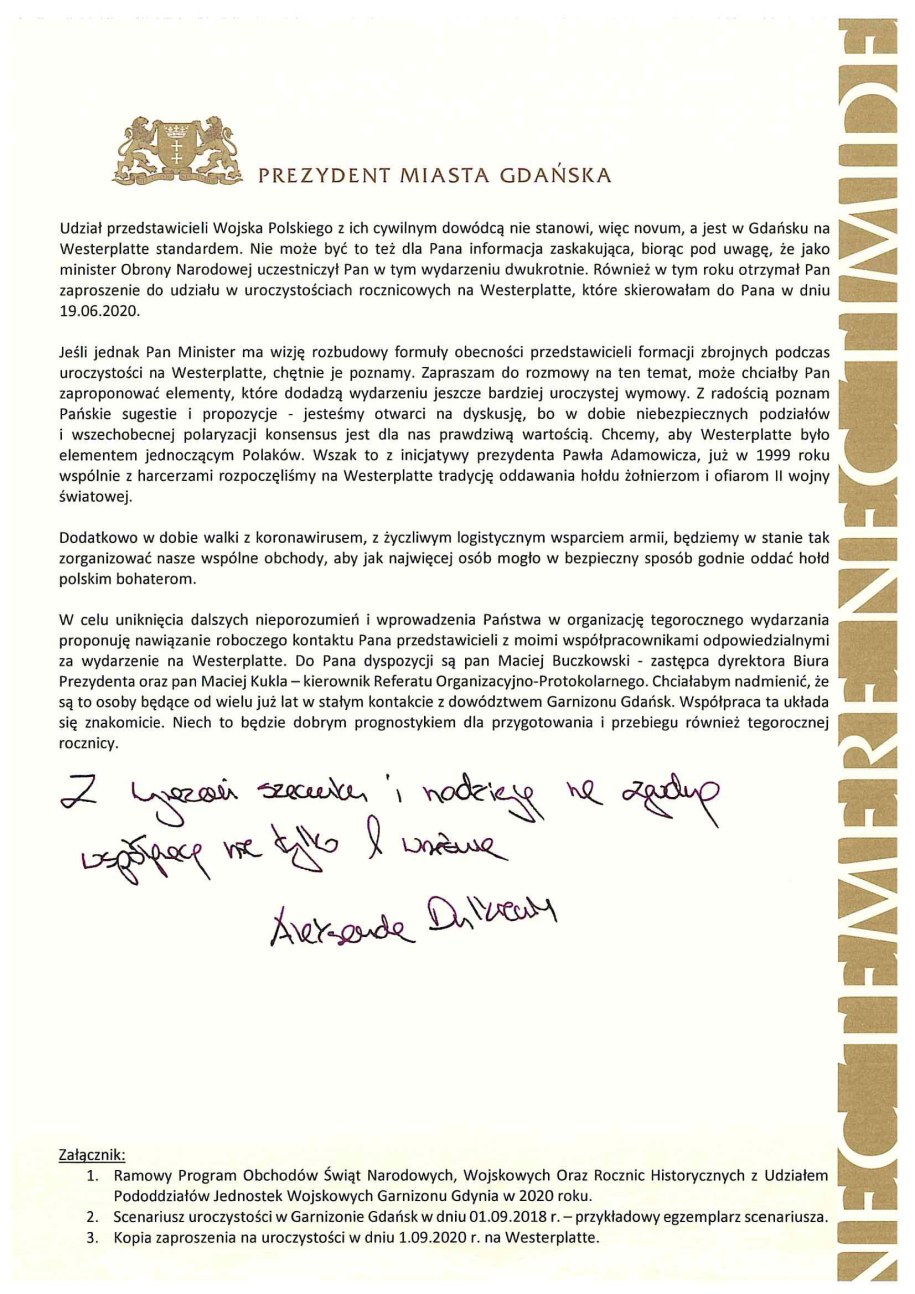 PREZYDENT MIASTA GDAŃSKA
Udział przedstawicieli Wojska Polskiego z ich cywilnym dowódcą nie stanowi, więc novum, a jest w Gdańsku na
Westerplatte standardem. Nie może być to też dla Pana informacja zaskakująca, biorąc pod uwagę, że jako
minister Obrony Narodowej uczestniczył Pan w tym wydarzeniu dwukrotnie. Również w tym roku otrzymał Pan
zaproszenie do udziału w uroczystościach rocznicowych na Westerplatte, które skierowałam do Pana w dniu
19.06.2020.
Jeśli jednak Pan Minister ma wizję rozbudowy formuły obecności przedstawicieli formacji zbrojnych podczas
uroczystości na Westerplatte, chętnie je poznamy. Zapraszam do rozmowy na ten temat, może chciałby Pan
zaproponować elementy, które dodadzą wydarzeniu jeszcze bardziej uroczystej wymowy. Z radością poznam
Pańskie sugestie i propozycje - jesteśmy otwarci na dyskusję, bo w dobie niebezpiecznych podziałów
i wszechobecnej polaryzacji konsensus jest dla nas prawdziwą wartością. Chcemy, aby Westerplatte było
elementem jednoczącym Polaków. Wszak to z inicjatywy prezydenta Pawła Adamowicza, już w 1999 roku
wspólnie z harcerzami rozpoczęliśmy na Westerplatte tradycję oddawania hołdu żołnierzom i ofiarom II wojny
światowej.
Dodatkowo w dobie walki z koronawirusem, z życzliwym logistycznym wsparciem armii, będziemy w stanie tak
zorganizować nasze wspólne obchody, aby jak najwięcej osób mogło w bezpieczny sposób godnie oddać hołd
polskim bohaterom.
W celu uniknięcia dalszych nieporozumień i wprowadzenia Państwa w organizację tegorocznego wydarzania
proponuję nawiązanie roboczego kontaktu Pana przedstawicieli z moimi współpracownikami odpowiedzialnymi
za wydarzenie na Westerplatte. Do Pana dyspozycji są pan Maciej Buczkowski - zastępca dyrektora Biura
Prezydenta oraz pan Maciej Kukla – kierownik Referatu Organizacyjno-Protokolarnego. Chciałabym nadmienić, że
są to osoby będące od wielu już lat w stałym kontakcie z dowództwem Garnizonu Gdańsk. Współpraca ta układa
się znakomicie. Niech to będzie dobrym prognostykiem dla przygotowania i przebiegu również tegorocznej
rocznicy.
Z wyrazami szacunku i nadzieją na zgodną
współpracę nie tylko 1 września
Aleksandra Dulkiewicz
Załącznik:
1. Ramowy Program Obchodów Świąt Narodowych, Wojskowych Oraz Rocznic Historycznych z Udziałem
Pododdziałów Jednostek Wojskowych Garnizonu Gdynia w 2020 roku.
2. Scenariusz uroczystości w Garnizonie Gdańsk w dniu 01.09.2018 r. – przykładowy egzemplarz scenariusza.
3. Kopia zaproszenia na uroczystości w dniu 1.09.2020 r. na Westerplatte.
NEC TEMERE NEC TIMIDE